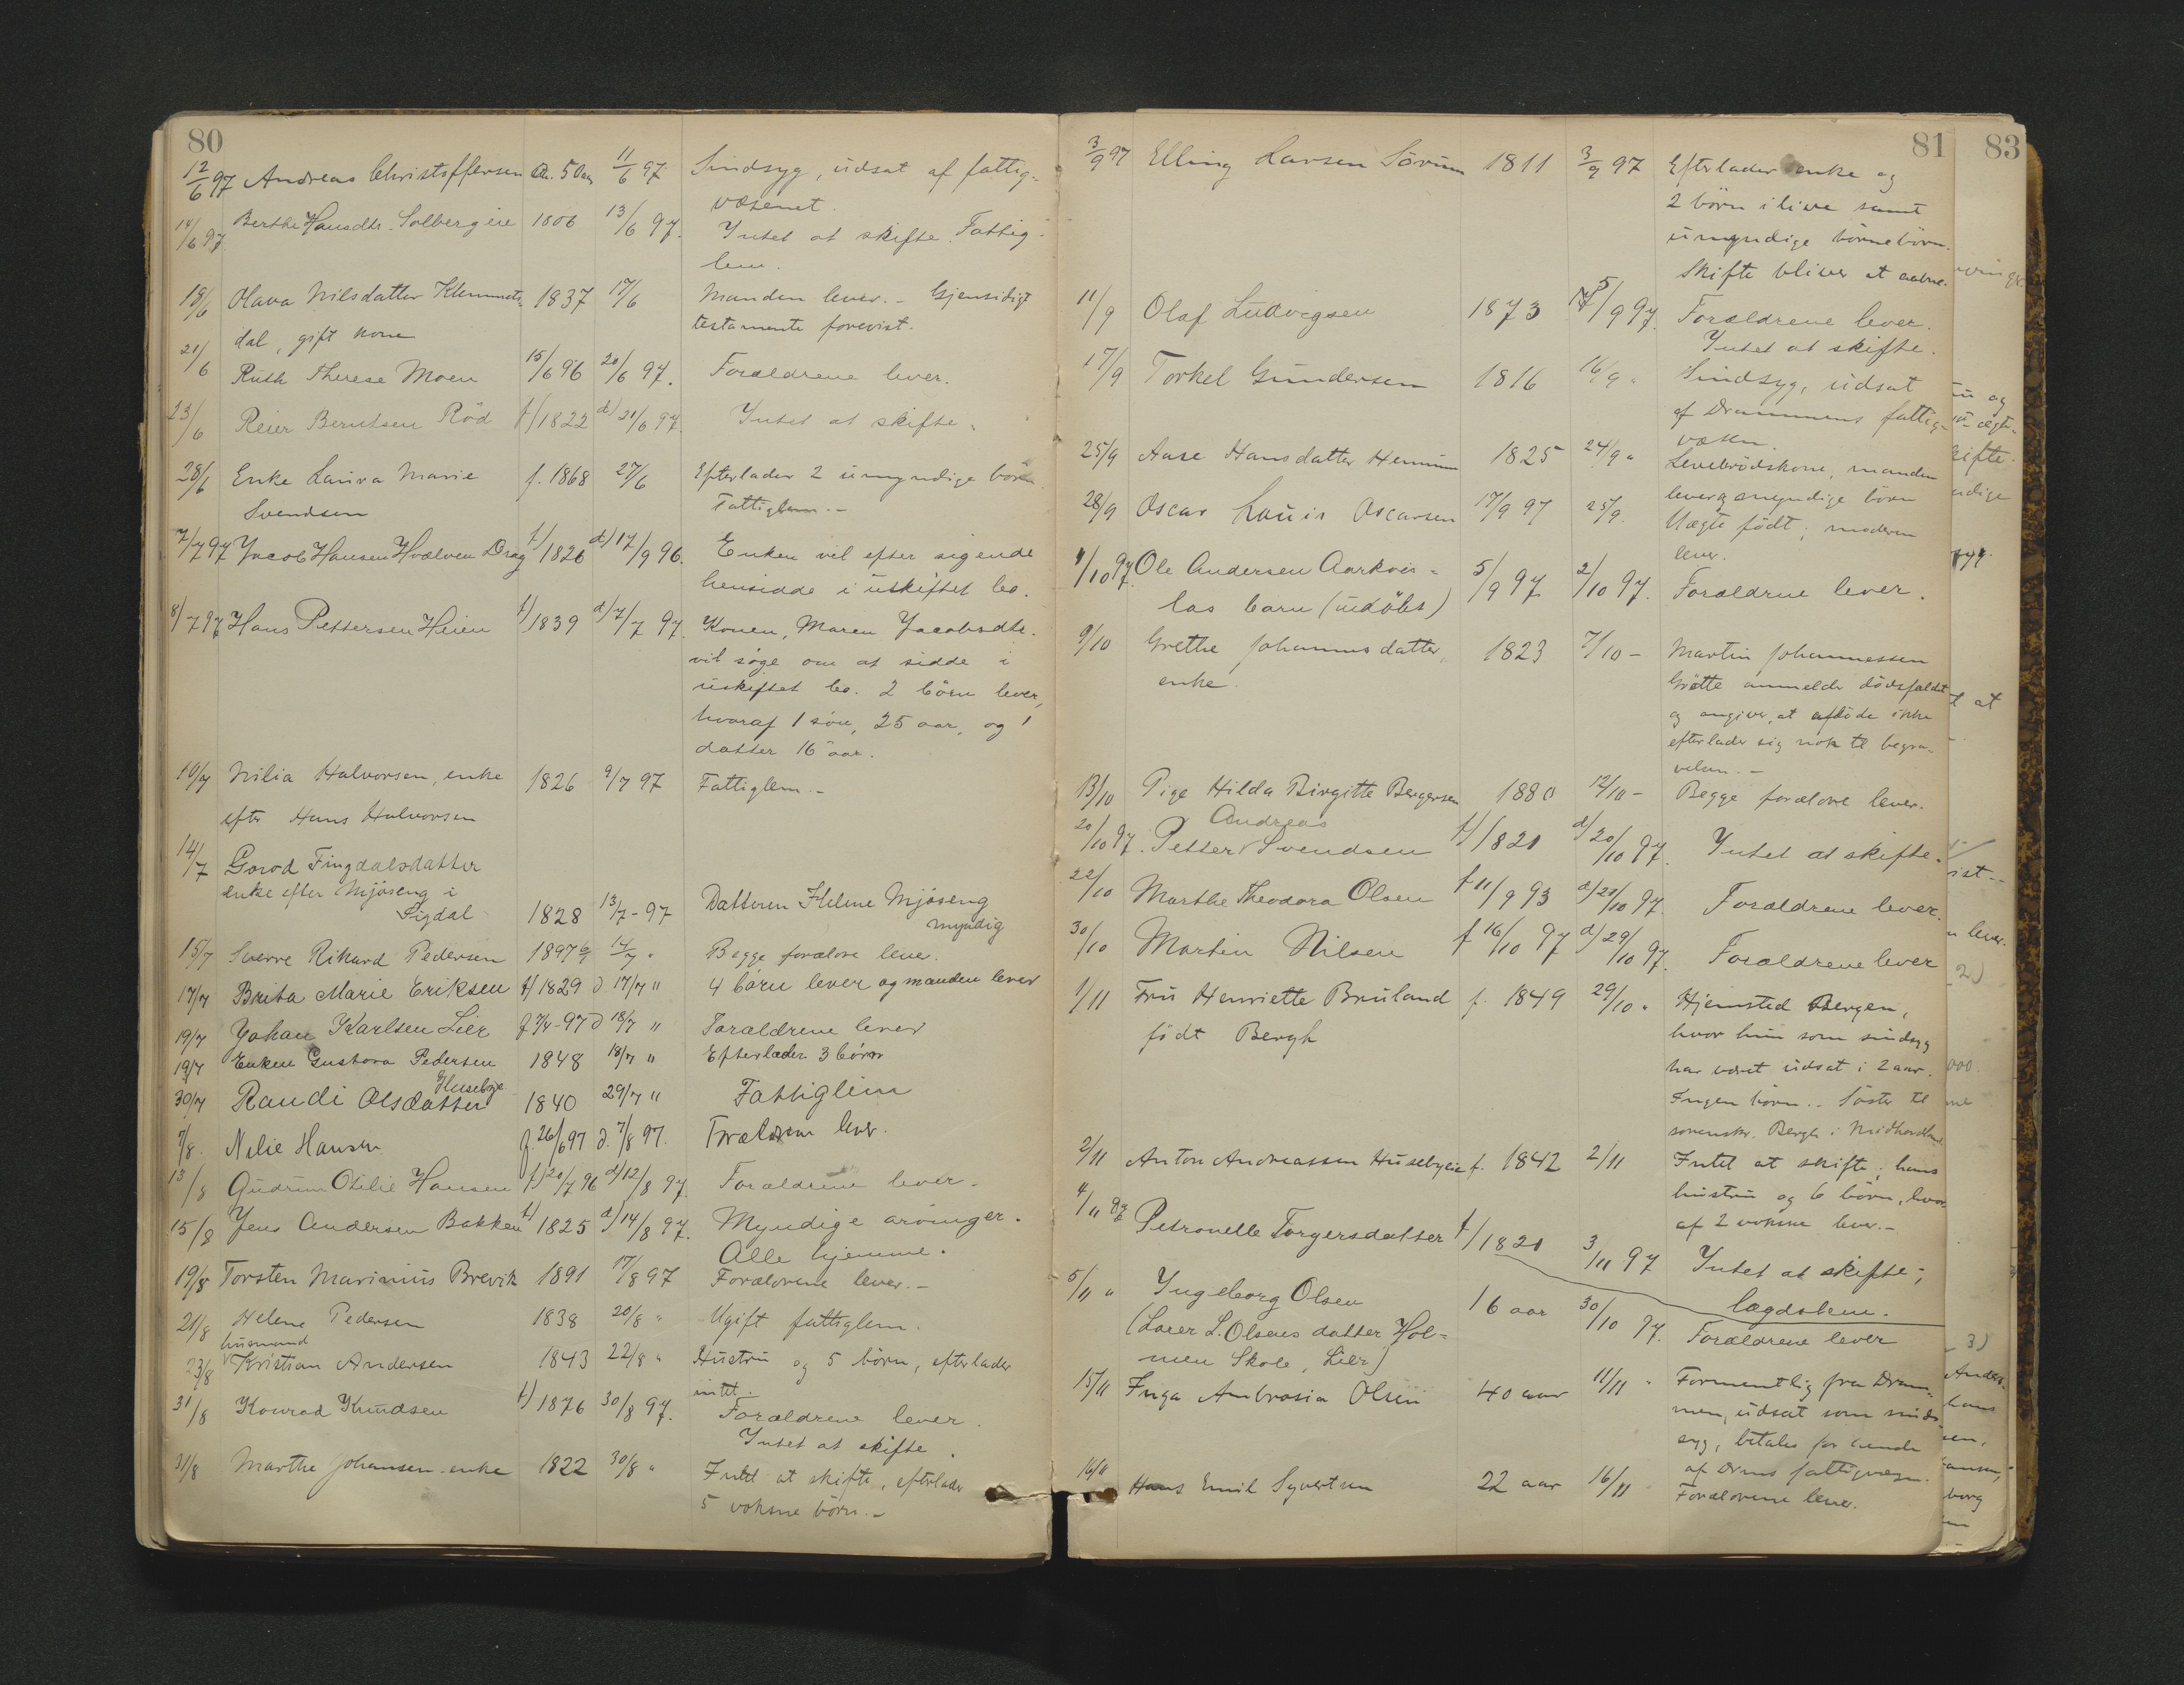 80
12/6 97 Andreas Christoffersen Ca. 50 aar 11/6 97 Sindsyg, udsat af fattig-
væsenet.
14/6 97. Berthe Hansdtr. Solbergeie 1806 13/6 97. Intet at skifte. Fattig-
lem.
18/6 Olava Nilsdatter Klemmets- 1837 17/6 Manden lever. - Gjensidigt
dal, gift kone testamente forevist.
21/6 Ruth Therese Moen 15/6 96 20/6 97. Forældrene lever.
23/6 Reier Berntsen Röd f/1822 d/21/6 97. Intet at skifte.
28/6 Enke Laura Marie f. 1868 27/6 Efterlader 2 umyndige börn
Svendsen Fattiglem. -
7/7 97 Jacob Hansen Hvalven Drag f/1826 d/17/9 96. Enken vil efter sigende
hensidde i uskiftet bo.
8/7 97 Hans Pettersen Heien f/1839 d/7/7 97. Konen, Maren Jacobsdtr.
vil söge om at sidde i
uskiftet bo. 2 börn lever,
hvoraf 1 sön, 25 aar, og 1
datter 16 aar.
10/7 Nilia Halvorsen, enke 1826 9/7 97 Fattiglem. -
efter Hans Halvorsen
14/7 Gorod Fingdalsdatter
enke efter Mjöseng i
Sigdal 1828 13/7 - 97 Datteren Helene Mjöseng
myndig
15/7 Sverre Rikard Pedersen 1897 6/7 14/7 " Begge forældre lever.
17/7 Brita Marie Eriksen f/1829 d 17/7 " 4 börn lever og manden lever
19/7 Johan Karlsen Lier f 7/7 - 97 d 18/7 " Forældrene lever
19/7 Enken Gustava Pedersen 1848 18/7 " Efterlader 3 börn
Husebye
30/7 Randi Olsdatter 1840 29/7 " Fattiglem
7/8. Nilie Hansen f. 26/6 97 d. 7/8 97. Forældrene lever.
13/8 Gudrun Otilie Hansen f/20/7 96 d/12/8 97. Forældrene lever.
15/8 Jens Andersen Bakken f/1825 d/14/8 97. Myndige arvinger.
Alle hjemme.
19/8 Torsten Marinius Brevik 1891 17/8 97 Forældrene lever. -
21/8 Helene Pedersen 1838 20/8 " Ugift fattiglem.
husmand
23/8 Kristian Andersen 1843 22/8 " Hustru og 5 börn, efterlader
intet.
31/8 Konrad Knudsen f/1876 30/8 97. Forældrene lever.
Intet at skifte.
31/8 Marthe Johansen enke 1822 30/8 " Intet at skifte, efterlader
5 voksne börn. -
81
3/9 97 Elling Larsen Sörum 1811 3/9 97 Efterlader enke og
2 börn ilive samt
umyndige börnebörn.
Skifte bliver at aabne.
11/9 Olaf Ludvigsen 1873 5/9 97. Forældrene lever.
Intet at skifte.
17/9 Torkel Gundersen 1816 16/9 " Sindsyg, udsat
af Drammens fattig-
væsen.
25/9 Aase Hansdatter Hennum 1825 24/9 " Levebrödskone, manden
lever, myndige börn
28/9 Oscar Louis Oscarsen 17/9 97 25/9. Uægte födt; moderen
lever.
4/10 97. Ole Andersen Aarkvis- 5/9 97 2/10 97. Forældrene lever.
las barn (udöbt)
9/10 Grethe Johannesdatter, 1823 7/10 - Martin Johannessen
enke. Grötte anmelder dödsfaldet
og angiver, at afdöde ikke
efterlader sig nok til begra-
velsen. -
13/10 Pige Hilda Birgitte Bergersen 1880 12/10 - Begge forældre lever.
Andreas
20/10 97. Petter Svendsen f/1821 d/20/10 97. Intet at skifte.
22/10 Marthe Theodora Olsen f 11/9 93 d/21/10 97. Forældrene lever.
30/10 Martin Nilsen f 16/10 97 d/29/10 97. Forældrene lever
1/11 Fru Henriette Bruland f. 1849 29/10 " Hjemsted Bergen,
födt Bergh hvor hun som sindsyg
har været udsat i 2 aar.
Ingen börn. - Söster til
sorenskr. Bergh i Midhordland
2/11 Anton Andreassen Husebyeie f. 1842 2/11 Intet at skifte; hans
hustru og 6 börn, hvor-
af 2 voksne lever. -
4/11 97 Petronelle Torgersdatter f/1821 3/11 97 Intet at skifte;
lægdslem.
5/11 " Ingeborg Olsen 16 aar 30/10 97. Forældrene lever
(Lærer L. Olsens datter Hol-
men Skole, Lier)
15/11 Inga Ambrosia Olsen 40 aar 11/11 " Formentlig fra Dram-
men, udsat som sind-
syg, betales for hende
af Drams fattigvæsen.
16/11 Hans Emil Syvertsen 22 aar 16/11 Forældrene lever.
83